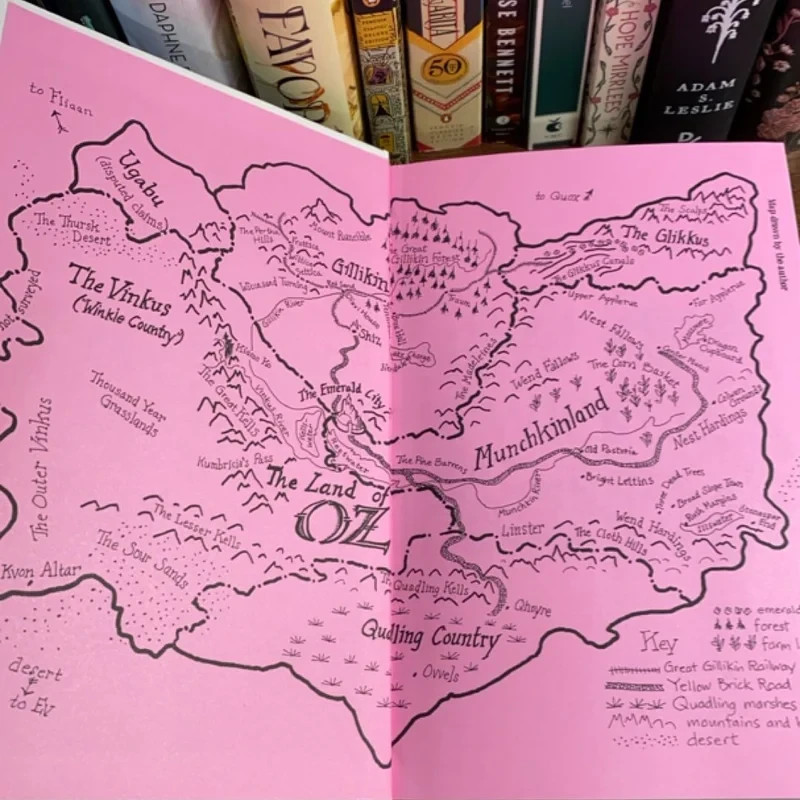 DAPHNE
FAVOR
50
SE BENNETT
HOPE MIRRLEES
ADAM
S.
LESLIE
to Fliaan
Ugabu
(disputed claims)
The Thursk
Desert
not surveyed
The Vinkus
(Winkie Country)
Thousand Year
Grasslands
The Outer Vinkus
Kumbricia's Pass
The Great Kells
Vinkus River
The Lesser Kells
The Sour Sands
Kvon Altar
desert
to Ev
The Pertha
Hills
Mount Runcible
Settica
Gillikin
Gillikin River
Shiz
The Emerald City
The Land of
OZ
to Quox
Great
Gillikin Forest
The Scalps
The Glikkus
Glikkus Canals
Traum
The Madeleines
Upper Applerue
Far Applerue
Nest Fallows
Wend Fallows
The Corn Basket
Dragon
Cupboard
Center Munch
Colwen
Grounds
Munchkinland
Nest Hardings
Old Pastoria
The Pine Barrens
Bright Lettins
Munchkin River
Three Dead Trees
Broad Slope Town
Rush Margins
Illswater
Stonespar
End
Wend Hardings
Linster
The Cloth Hills
Quadling Kells
Qhoyre
Quadling Country
Ovvels
Map drawn by the author
Key
emerald
forest
farm
Great Gillikin Railway
Yellow Brick Road
Quadling marshes
mountains and
desert